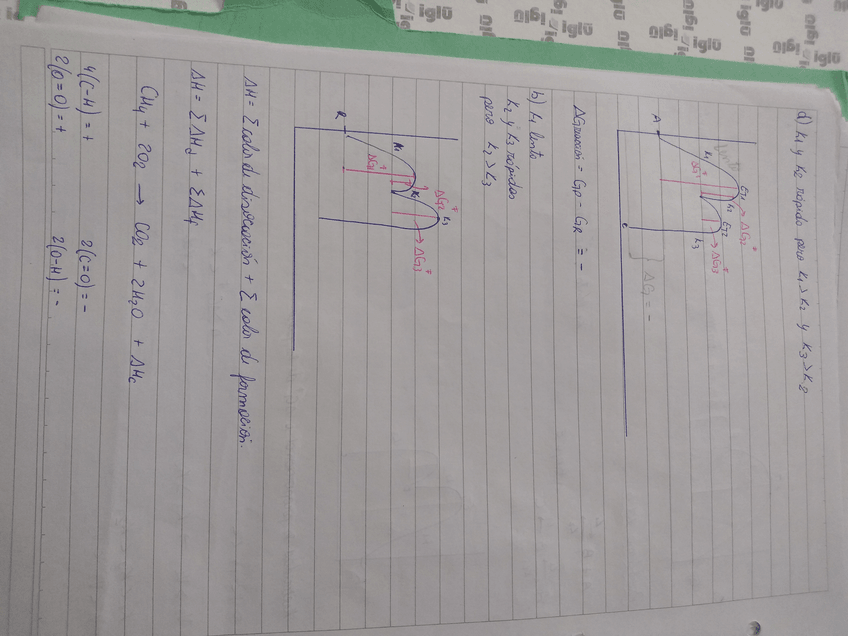 a) k1 y k2 rápido pero k1 > k2 y k3 > k2
lento
ET1
→ ΔG2‡
k1
k2
ET2
ΔG1‡
→ ΔG3‡
k3
A
ΔG = -
ΔGreacción = GP - GR = -
b) k1 lento
k2 y k3 rápidos
pero k2 > k3
ΔG2‡
k3
k1
ΔG1‡
→ ΔG3‡
R
ΔH = Σ calor de disociación + Σ calor de formación.
ΔH = ΣΔHd + ΣΔHf
CH4 + 2O2 → CO2 + 2H2O + ΔHc
4(C-H) = + 2(C=O) = -
2(O=O) = + 2(O-H) = -